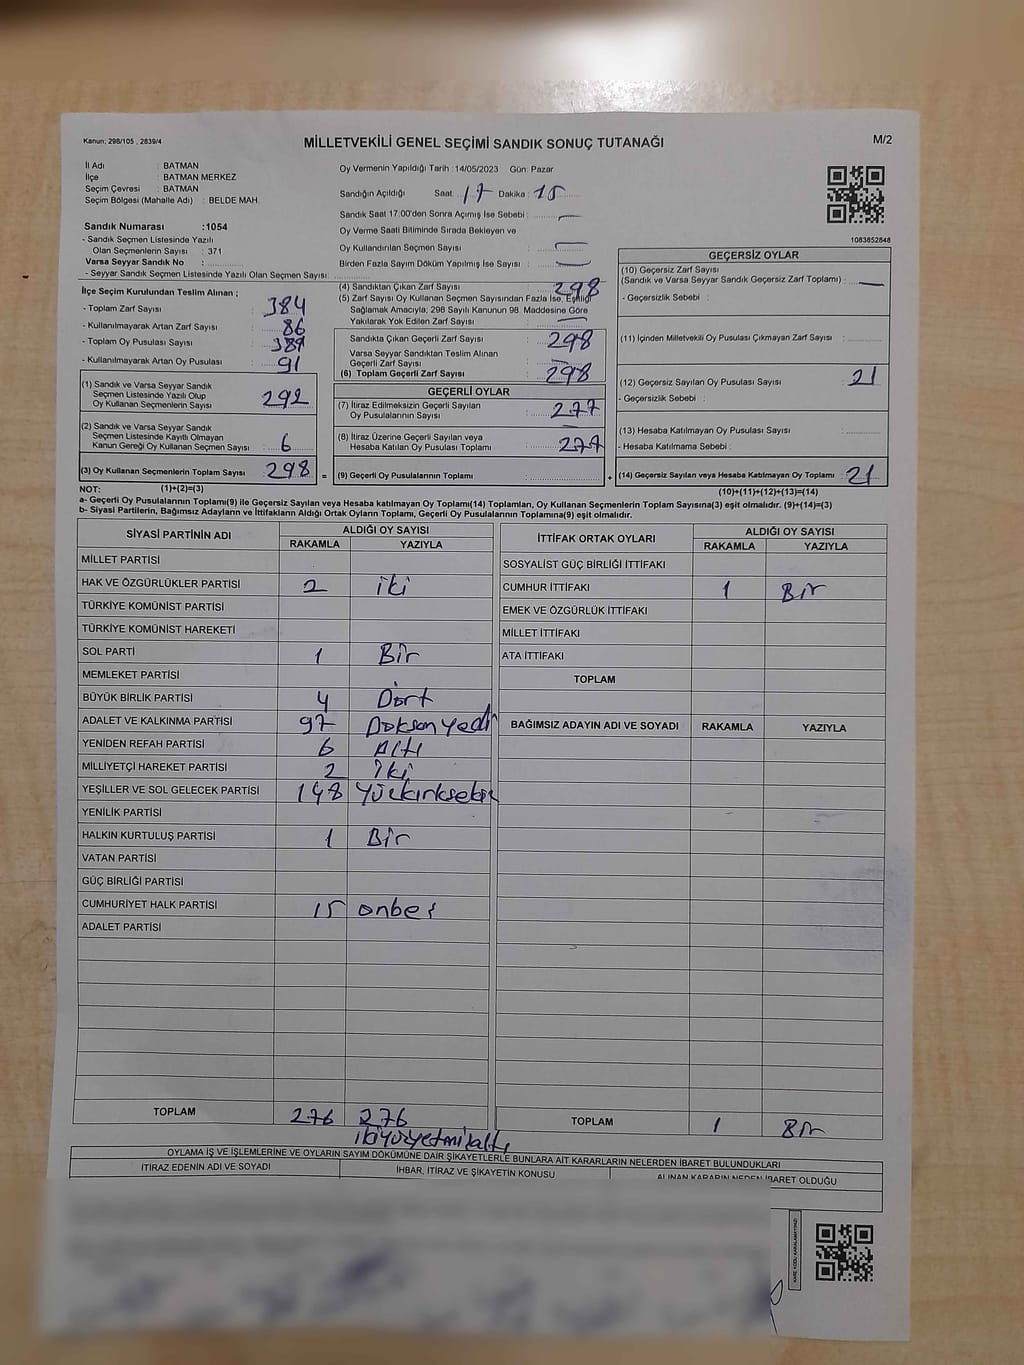 Kanun; 298/105 , 2839/4
MİLLETVEKİLİ GENEL SEÇİMİ SANDIK SONUÇ TUTANAĞI
M/2
İl Adı : BATMAN
İlçe : BATMAN MERKEZ
Seçim Çevresi : BATMAN
Seçim Bölgesi (Mahalle Adı) : BELDE MAH.
Oy Vermenin Yapıldığı Tarih : 14/05/2023 Gün: Pazar
Sandığın Açıldığı Saat: 17 Dakika: 15
Sandık Saat 17:00'den Sonra Açımış İse Sebebi : —
Oy Verme Saati Bitiminde Sırada Bekleyen ve
Oy Kullandırılan Seçmen Sayısı : —
Birden Fazla Sayım Döküm Yapılmış İse Sayısı : —
1083852848
Sandık Numarası :1054
- Sandık Seçmen Listesinde Yazılı
Olan Seçmenlerin Sayısı : 371
Varsa Seyyar Sandık No :
- Seyyar Sandık Seçmen Listesinde Yazılı Olan Seçmen Sayısı:
İlçe Seçim Kurulundan Teslim Alınan ;
- Toplam Zarf Sayısı : 384
- Kullanılmayarak Artan Zarf Sayısı : 86
- Toplam Oy Pusulası Sayısı : 389
- Kullanılmayarak Artan Oy Pusulası : 91
(1) Sandık ve Varsa Seyyar Sandık
Seçmen Listesinde Yazılı Olup
Oy Kullanan Seçmenlerin Sayısı : 292
(2) Sandık ve Varsa Seyyar Sandık
Seçmen Listesinde Kayıtlı Olmayan
Kanun Gereği Oy Kullanan Seçmen Sayısı : 6
(3) Oy Kullanan Seçmenlerin Toplam Sayısı 298
(1)+(2)=(3)
(4) Sandıktan Çıkan Zarf Sayısı : 298
(5) Zarf Sayısı Oy Kullanan Seçmen Sayısından Fazla İse, Eşitliği
Sağlamak Amacıyla; 298 Sayılı Kanunun 98. Maddesine Göre
Yakılarak Yok Edilen Zarf Sayısı : —
Sandıkta Çıkan Geçerli Zarf Sayısı : 298
Varsa Seyyar Sandıktan Teslim Alınan
Geçerli Zarf Sayısı : —
(6) Toplam Geçerli Zarf Sayısı : 298
GEÇERLİ OYLAR
(7) İtiraz Edilmeksizin Geçerli Sayılan
Oy Pusulalarının Sayısı : 277
(8) İtiraz Üzerine Geçerli Sayılan veya
Hesaba Katılan Oy Pusulası Toplamı : — 277
= (9) Geçerli Oy Pusulalarının Toplamı
GEÇERSİZ OYLAR
(10) Geçersiz Zarf Sayısı
(Sandık ve Varsa Seyyar Sandık Geçersiz Zarf Toplamı) : —
- Geçersizlik Sebebi :
(11) İçinden Milletvekili Oy Pusulası Çıkmayan Zarf Sayısı :
(12) Geçersiz Sayılan Oy Pusulası Sayısı : 21
- Geçersizlik Sebebi :
(13) Hesaba Katılmayan Oy Pusulası Sayısı :
- Hesaba Katılmama Sebebi :
+ (14) Geçersiz Sayılan veya Hesaba Katılmayan Oy Toplamı : 21
(10)+(11)+(12)+(13)=(14)
NOT:
a- Geçerli Oy Pusulalarının Toplamı(9) ile Geçersiz Sayılan veya Hesaba katılmayan Oy Toplamı(14) Toplamları, Oy Kullanan Seçmenlerin Toplam Sayısına(3) eşit olmalıdır. (9)+(14)=(3)
b- Siyasi Partilerin, Bağımsız Adayların ve İttifakların Aldığı Ortak Oyların Toplamı, Geçerli Oy Pusulalarının Toplamına(9) eşit olmalıdır.
SİYASİ PARTİNİN ADI ALDIĞI OY SAYISI
RAKAMLA YAZIYLA
MİLLET PARTİSİ
HAK VE ÖZGÜRLÜKLER PARTİSİ 2 iki
TÜRKİYE KOMÜNİST PARTİSİ
TÜRKİYE KOMÜNİST HAREKETİ
SOL PARTİ 1 Bir
MEMLEKET PARTİSİ
BÜYÜK BİRLİK PARTİSİ 4 Dört
ADALET VE KALKINMA PARTİSİ 97 Doksan yedi
YENİDEN REFAH PARTİSİ 6 Altı
MİLLİYETÇİ HAREKET PARTİSİ 2 İki
YEŞİLLER VE SOL GELECEK PARTİSİ 148 Yüzkırksekiz
YENİLİK PARTİSİ
HALKIN KURTULUŞ PARTİSİ 1 Bir
VATAN PARTİSİ
GÜÇ BİRLİĞİ PARTİSİ
CUMHURİYET HALK PARTİSİ 15 onbeş
ADALET PARTİSİ
TOPLAM 276 276
ikiyüzyetmişaltı
İTTİFAK ORTAK OYLARI ALDIĞI OY SAYISI
RAKAMLA YAZIYLA
SOSYALİST GÜÇ BİRLİĞİ İTTİFAKI
CUMHUR İTTİFAKI 1 Bir
EMEK VE ÖZGÜRLÜK İTTİFAKI
MİLLET İTTİFAKI
ATA İTTİFAKI
TOPLAM
BAĞIMSIZ ADAYIN ADI VE SOYADI RAKAMLA YAZIYLA
TOPLAM 1 Bir
OYLAMA İŞ VE İŞLEMLERİNE VE OYLARIN SAYIM DÖKÜMÜNE DAİR ŞİKAYETLERLE BUNLARA AİT KARARLARIN NELERDEN İBARET BULUNDUKLARI
İTİRAZ EDENİN ADI VE SOYADI İHBAR, İTİRAZ VE ŞİKAYETİN KONUSU ALINAN KARARIN NEDEN İBARET OLDUĞU
KARE KODU KARALAMAYINIZ!